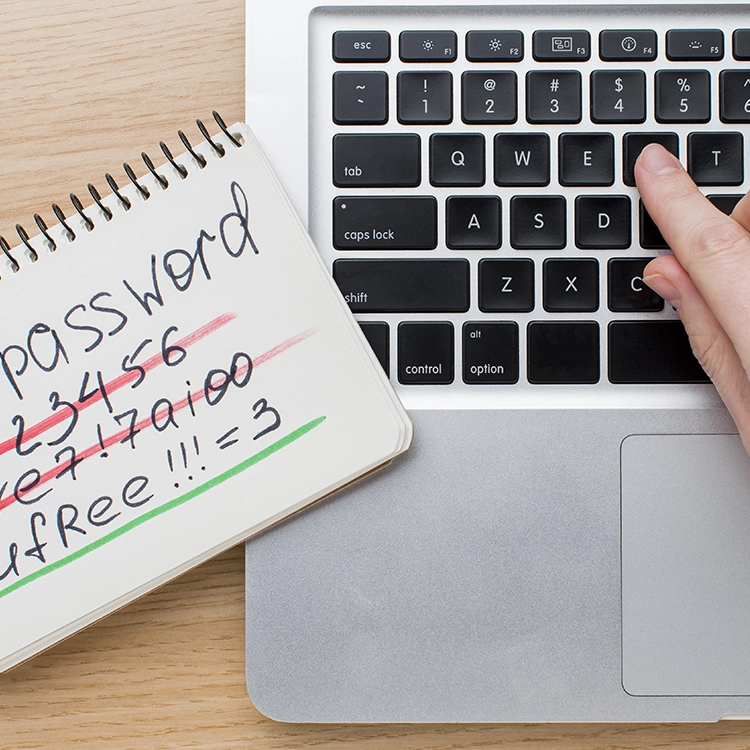 password
23456
e7!7aioo
ufRee!!!=3
esc F1 F2 F3 F4 F5
~ ! @ # $ %
` 1 2 3 4 5 6
tab Q W E T
caps lock A S D
shift Z X C
alt
control option